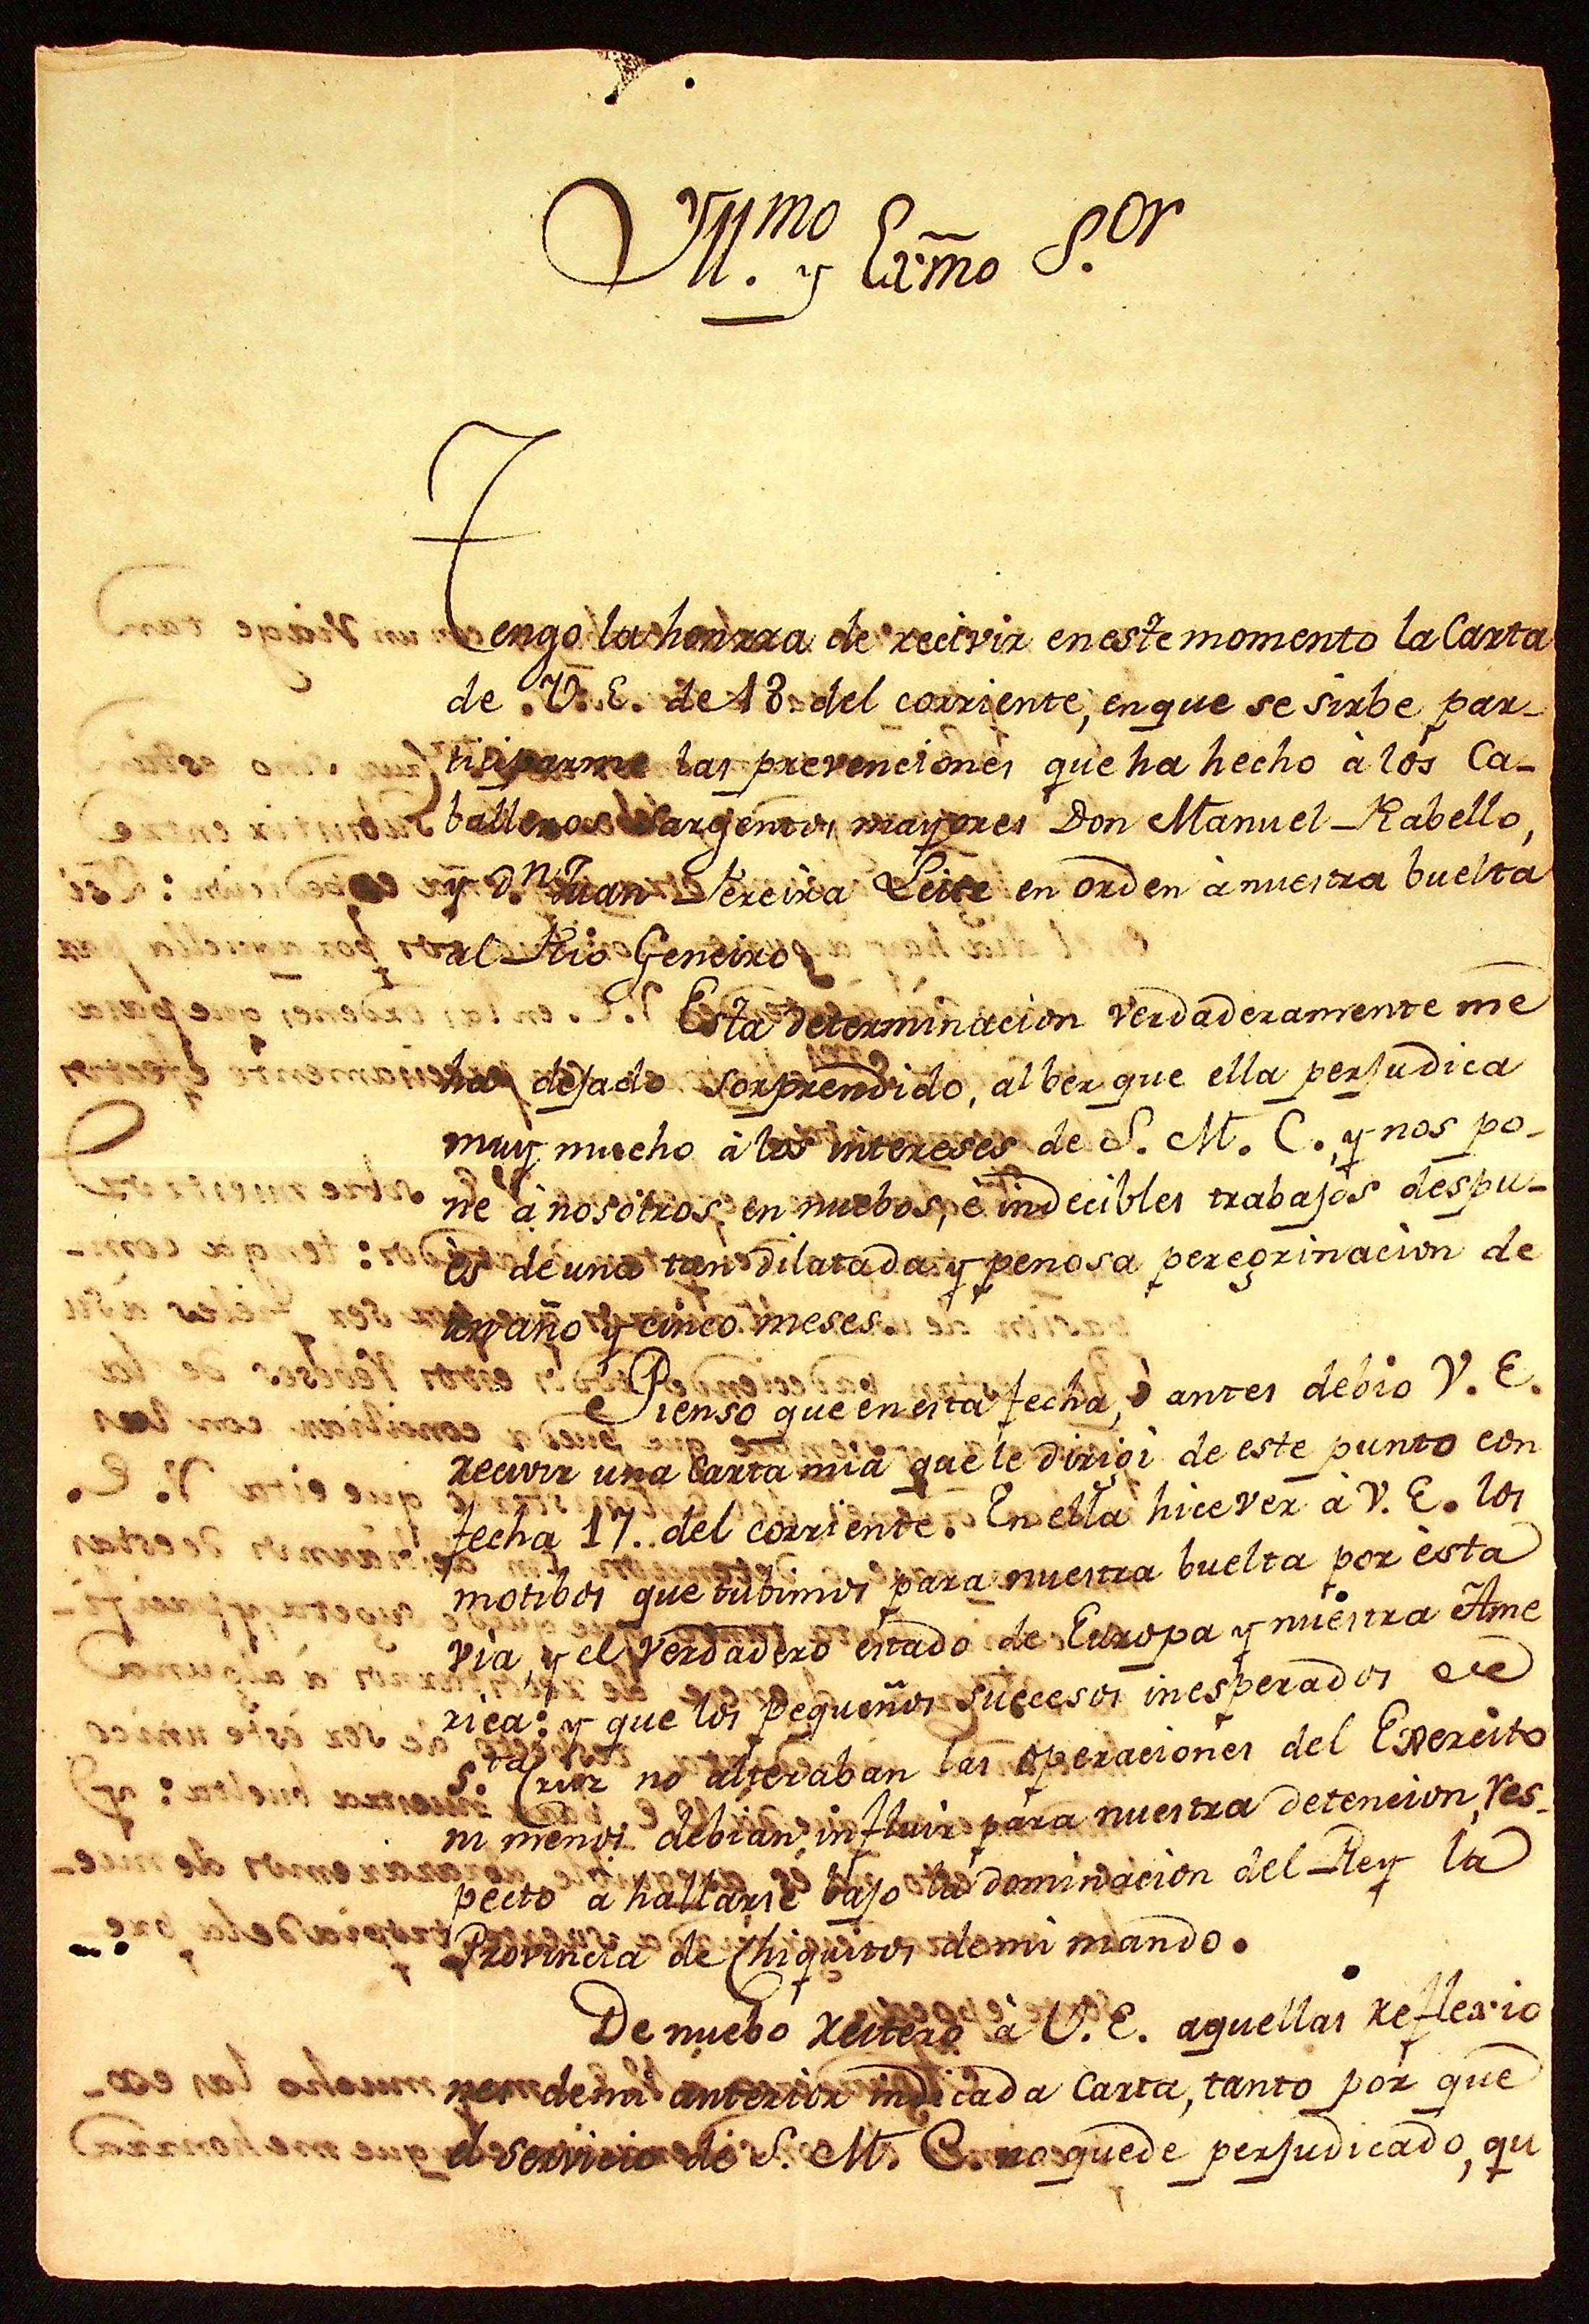 Yll.mo y Exm̃o S.or
Tengo la honrra de recivir en este momento la Carta
de V. E. de 18 del corriente, en que se sirbe par-
tisiparme las prevenciones que ha hecho à los Ca-
balleros Sargentos mayores Don Manuel Rabello,
y D.n Juan Pereira Leite en orden à nuestra buelta
al Rio Geneiro.
Esta determinacion verdaderamente me
ha dejado sorprendido, al ber que ella perjudica
muy mucho à los intereses de S. M. C., y nos po-
ne à nosotros en nuebos, è indecibles trabajos despu-
ès de una tan dilatada y penosa peregrinacion de
un año y cinco meses.
Pienso que en esta fecha, ò antes debio V. E.
recivir una Carta mia que le dirigì de este punto con
fecha 17. del corriente. En ella hice ver à V. E. los
motibos que tubimos para nuestra buelta por èsta
via, y el verdadero estado de Europa y nuestra Ame
rica: y que los pequeños sucesos inesperados de
S.ta Cruz no alteraban las operaciones del Exercito
ni menos debian influir para nuestra detencion, res-
pecto a hallarse bajo la dominacion del Rey la
Provincia de Chiquitos de mi mando.
De nuebo reitero à V. E. aquellas reflexio
nes de mi anterior indicada Carta, tanto por que
el servicio de S. M. C. no quede perjudicado, qu